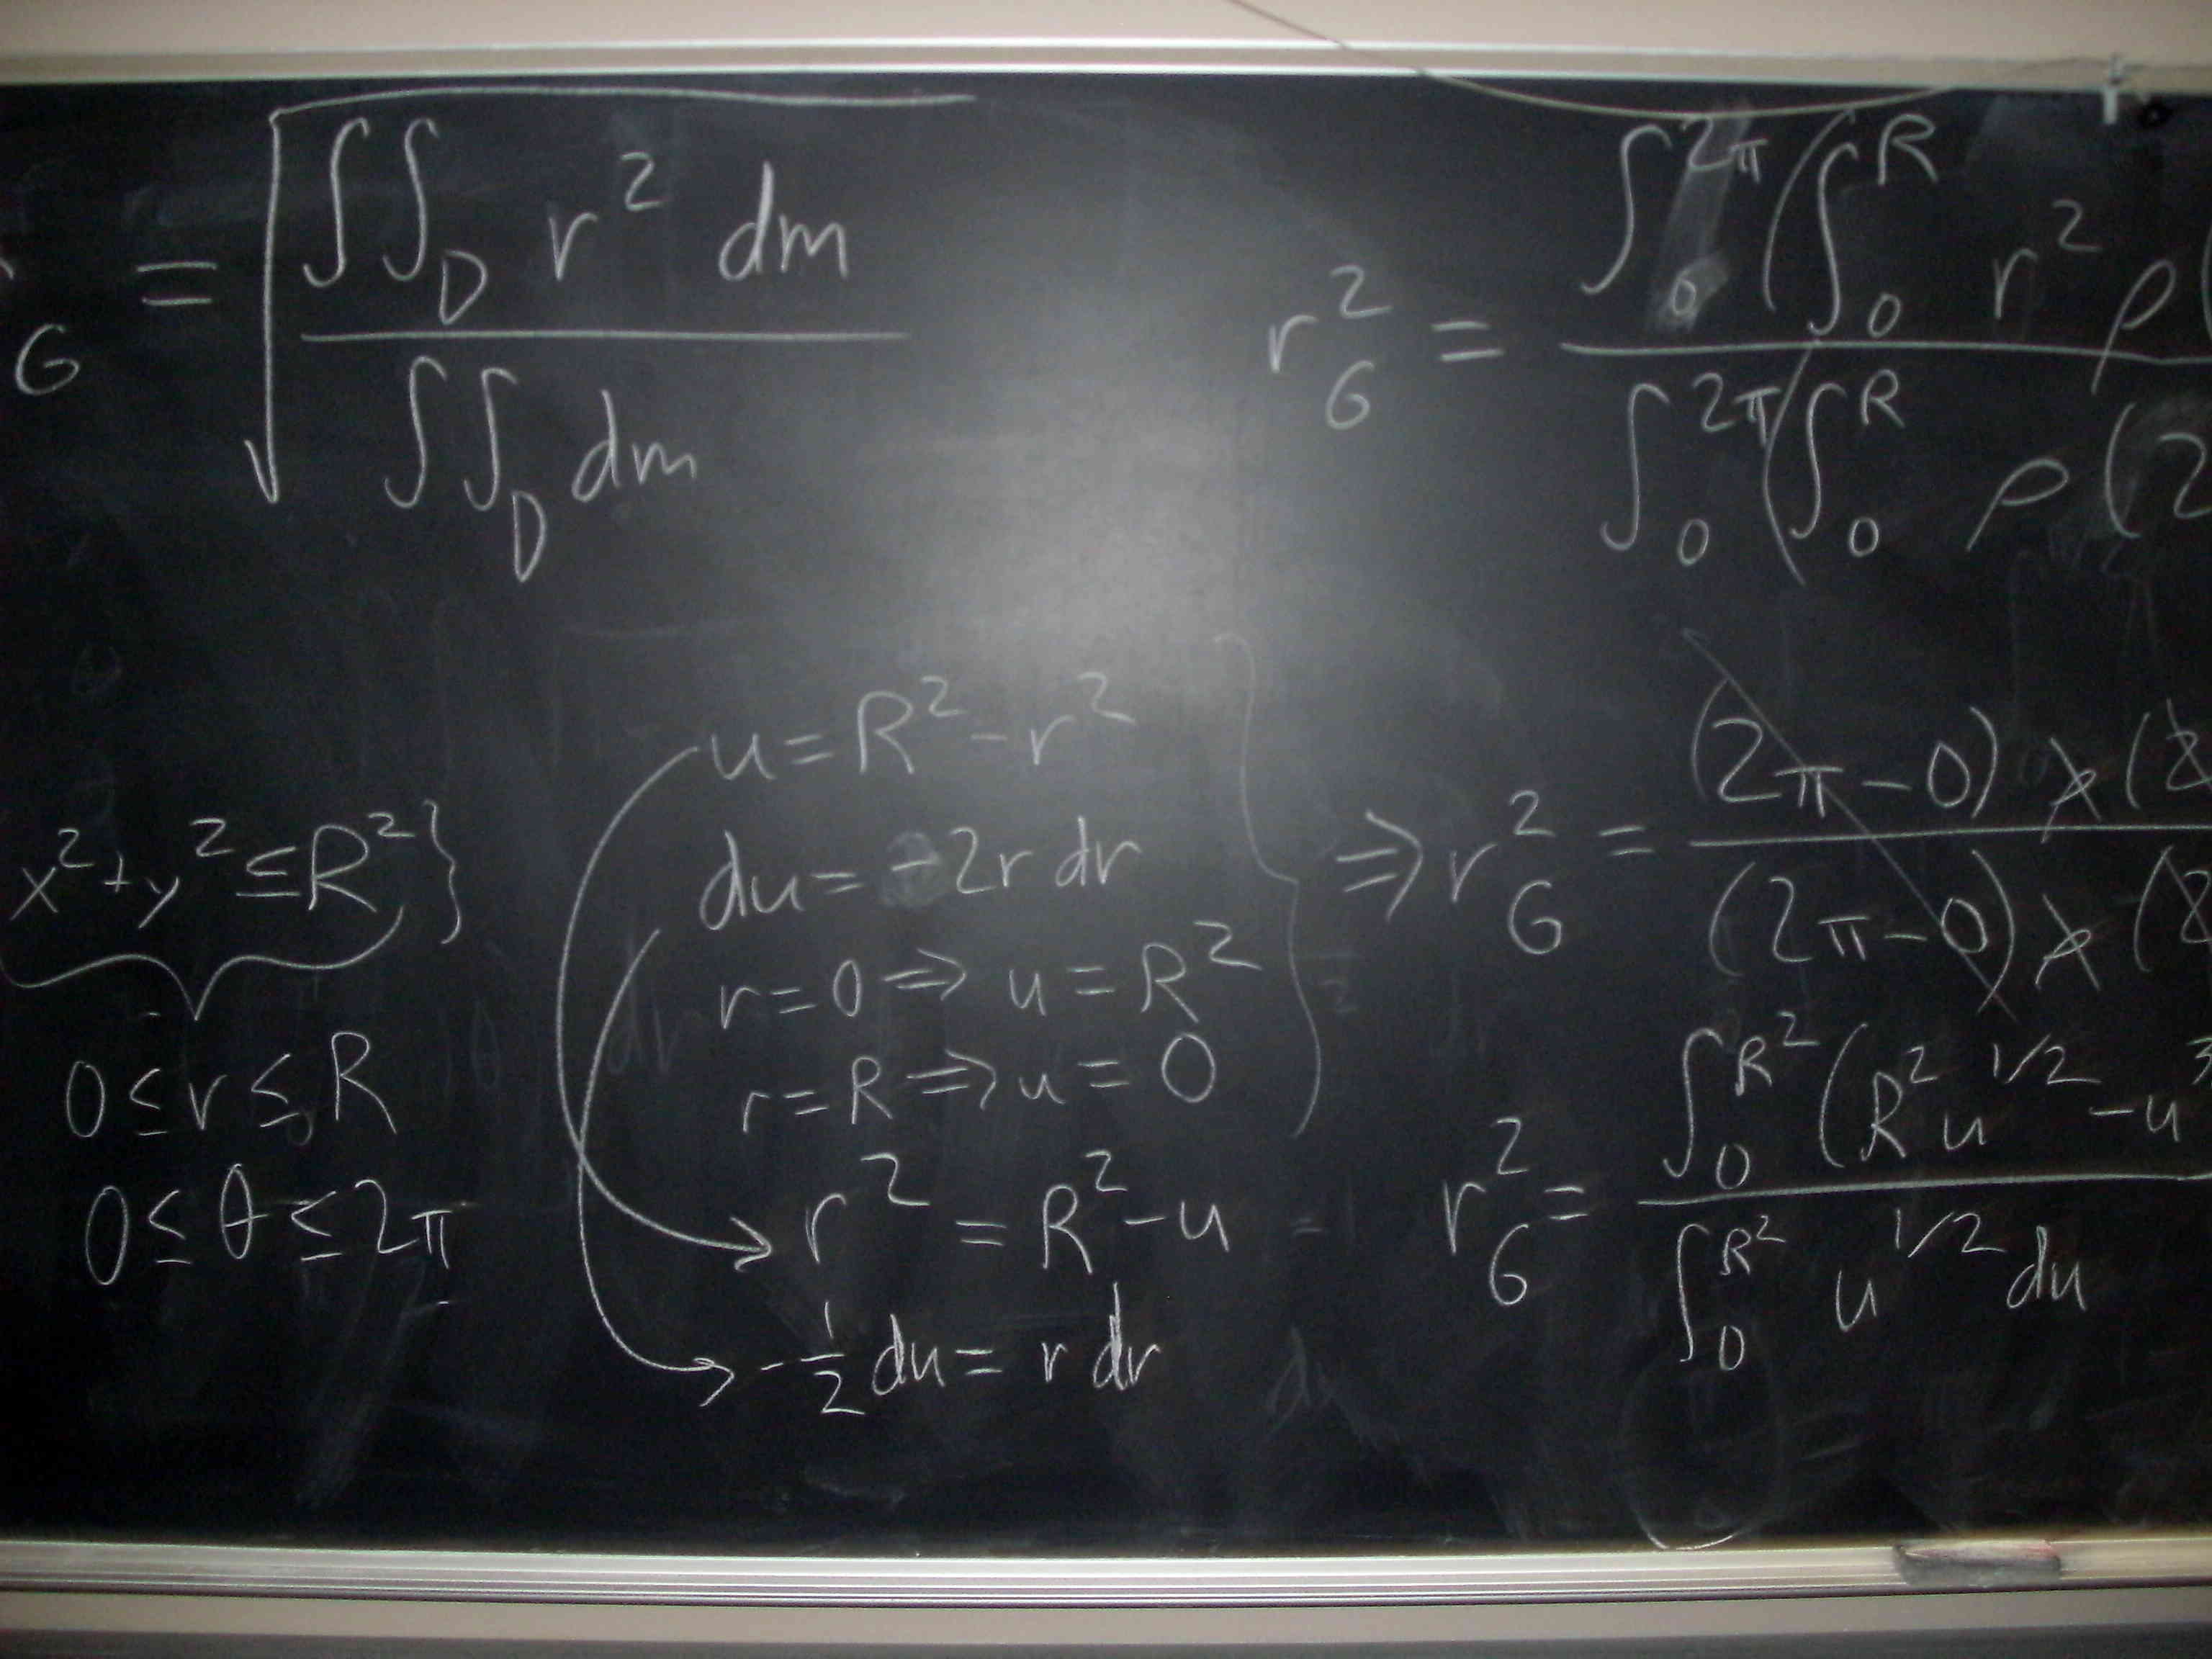 G = √ ∫∫_D r² dm / ∫∫_D dm
r²_G = ∫₀^2π (∫₀^R r² ρ( / ∫₀^2π (∫₀^R ρ (2
x² + y² ≤ R² }
0 ≤ r ≤ R
0 ≤ θ ≤ 2π
u = R² - r²
du = -2r dr
r = 0 ⇒ u = R²
r = R ⇒ u = 0
r² = R² - u
-1/2 du = r dr
⇒ r²_G = (2π - 0) ρ (2 / (2π - 0) ρ (2
r²_G = ∫₀^R² (R² u^1/2 - u^3 / ∫₀^R² u^1/2 du